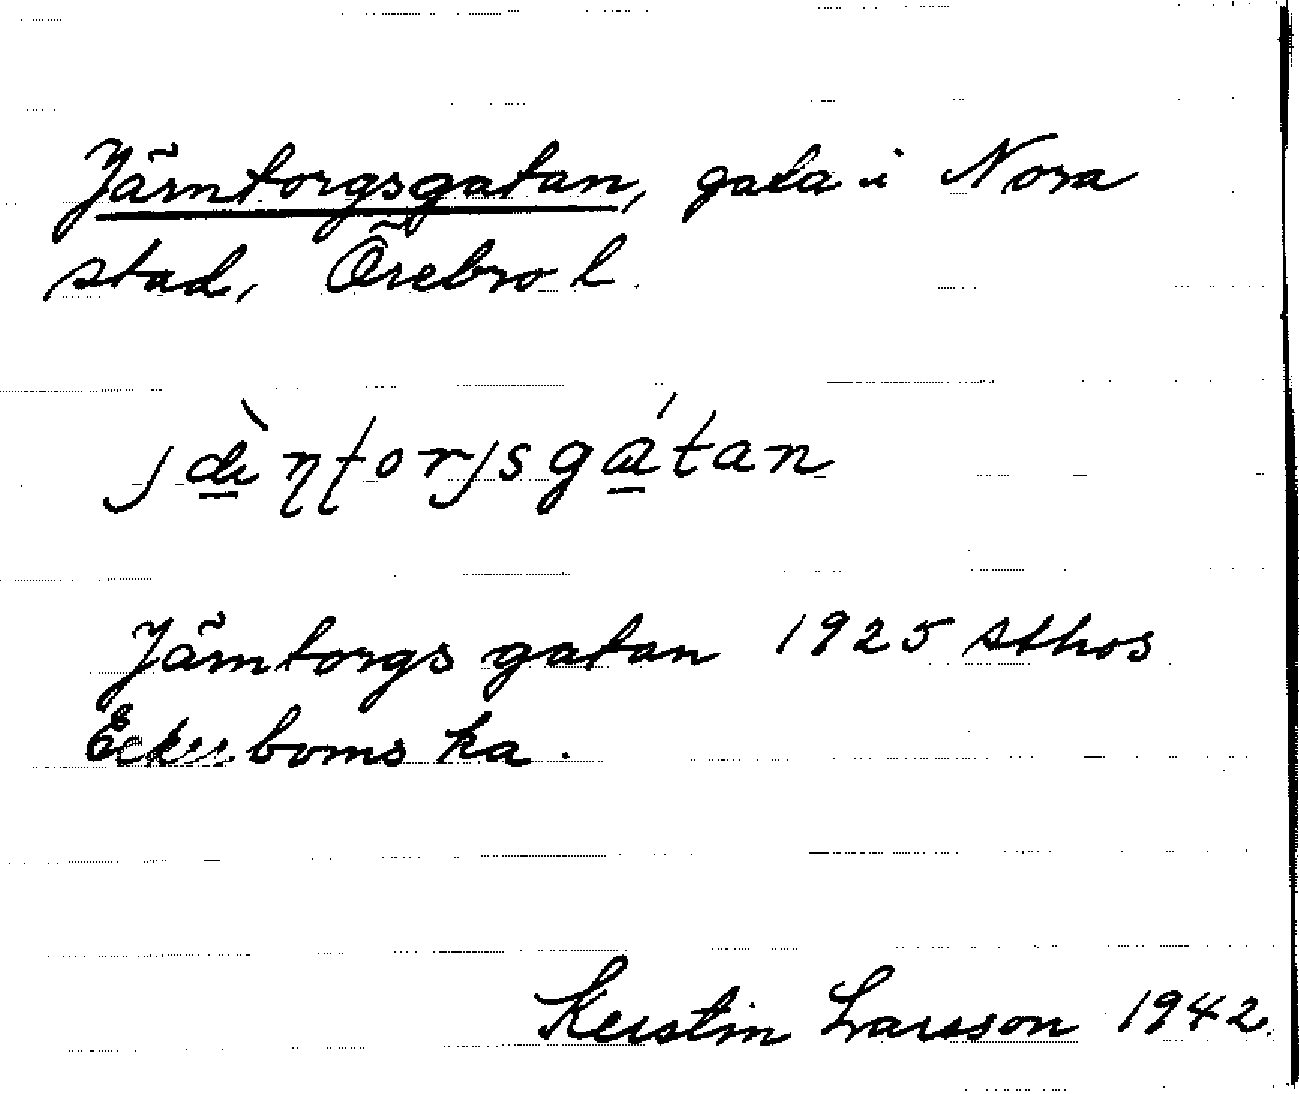 Järntorgsgatan, gata i Nora
stad, Örebro l.
jæ̀ṇʈorjsgátan
Järntorgsgatan 1925 Athos
Eckerboms ka.
Kerstin Larsson 1942.